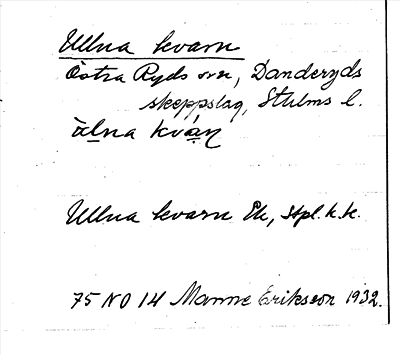 Ullna kvarn
Östra Ryds sn, Danderyds
skeppslag, Sthlms l.
Ullna kvarn Ek,
75 NO 14 Manne Eriksson 1932.